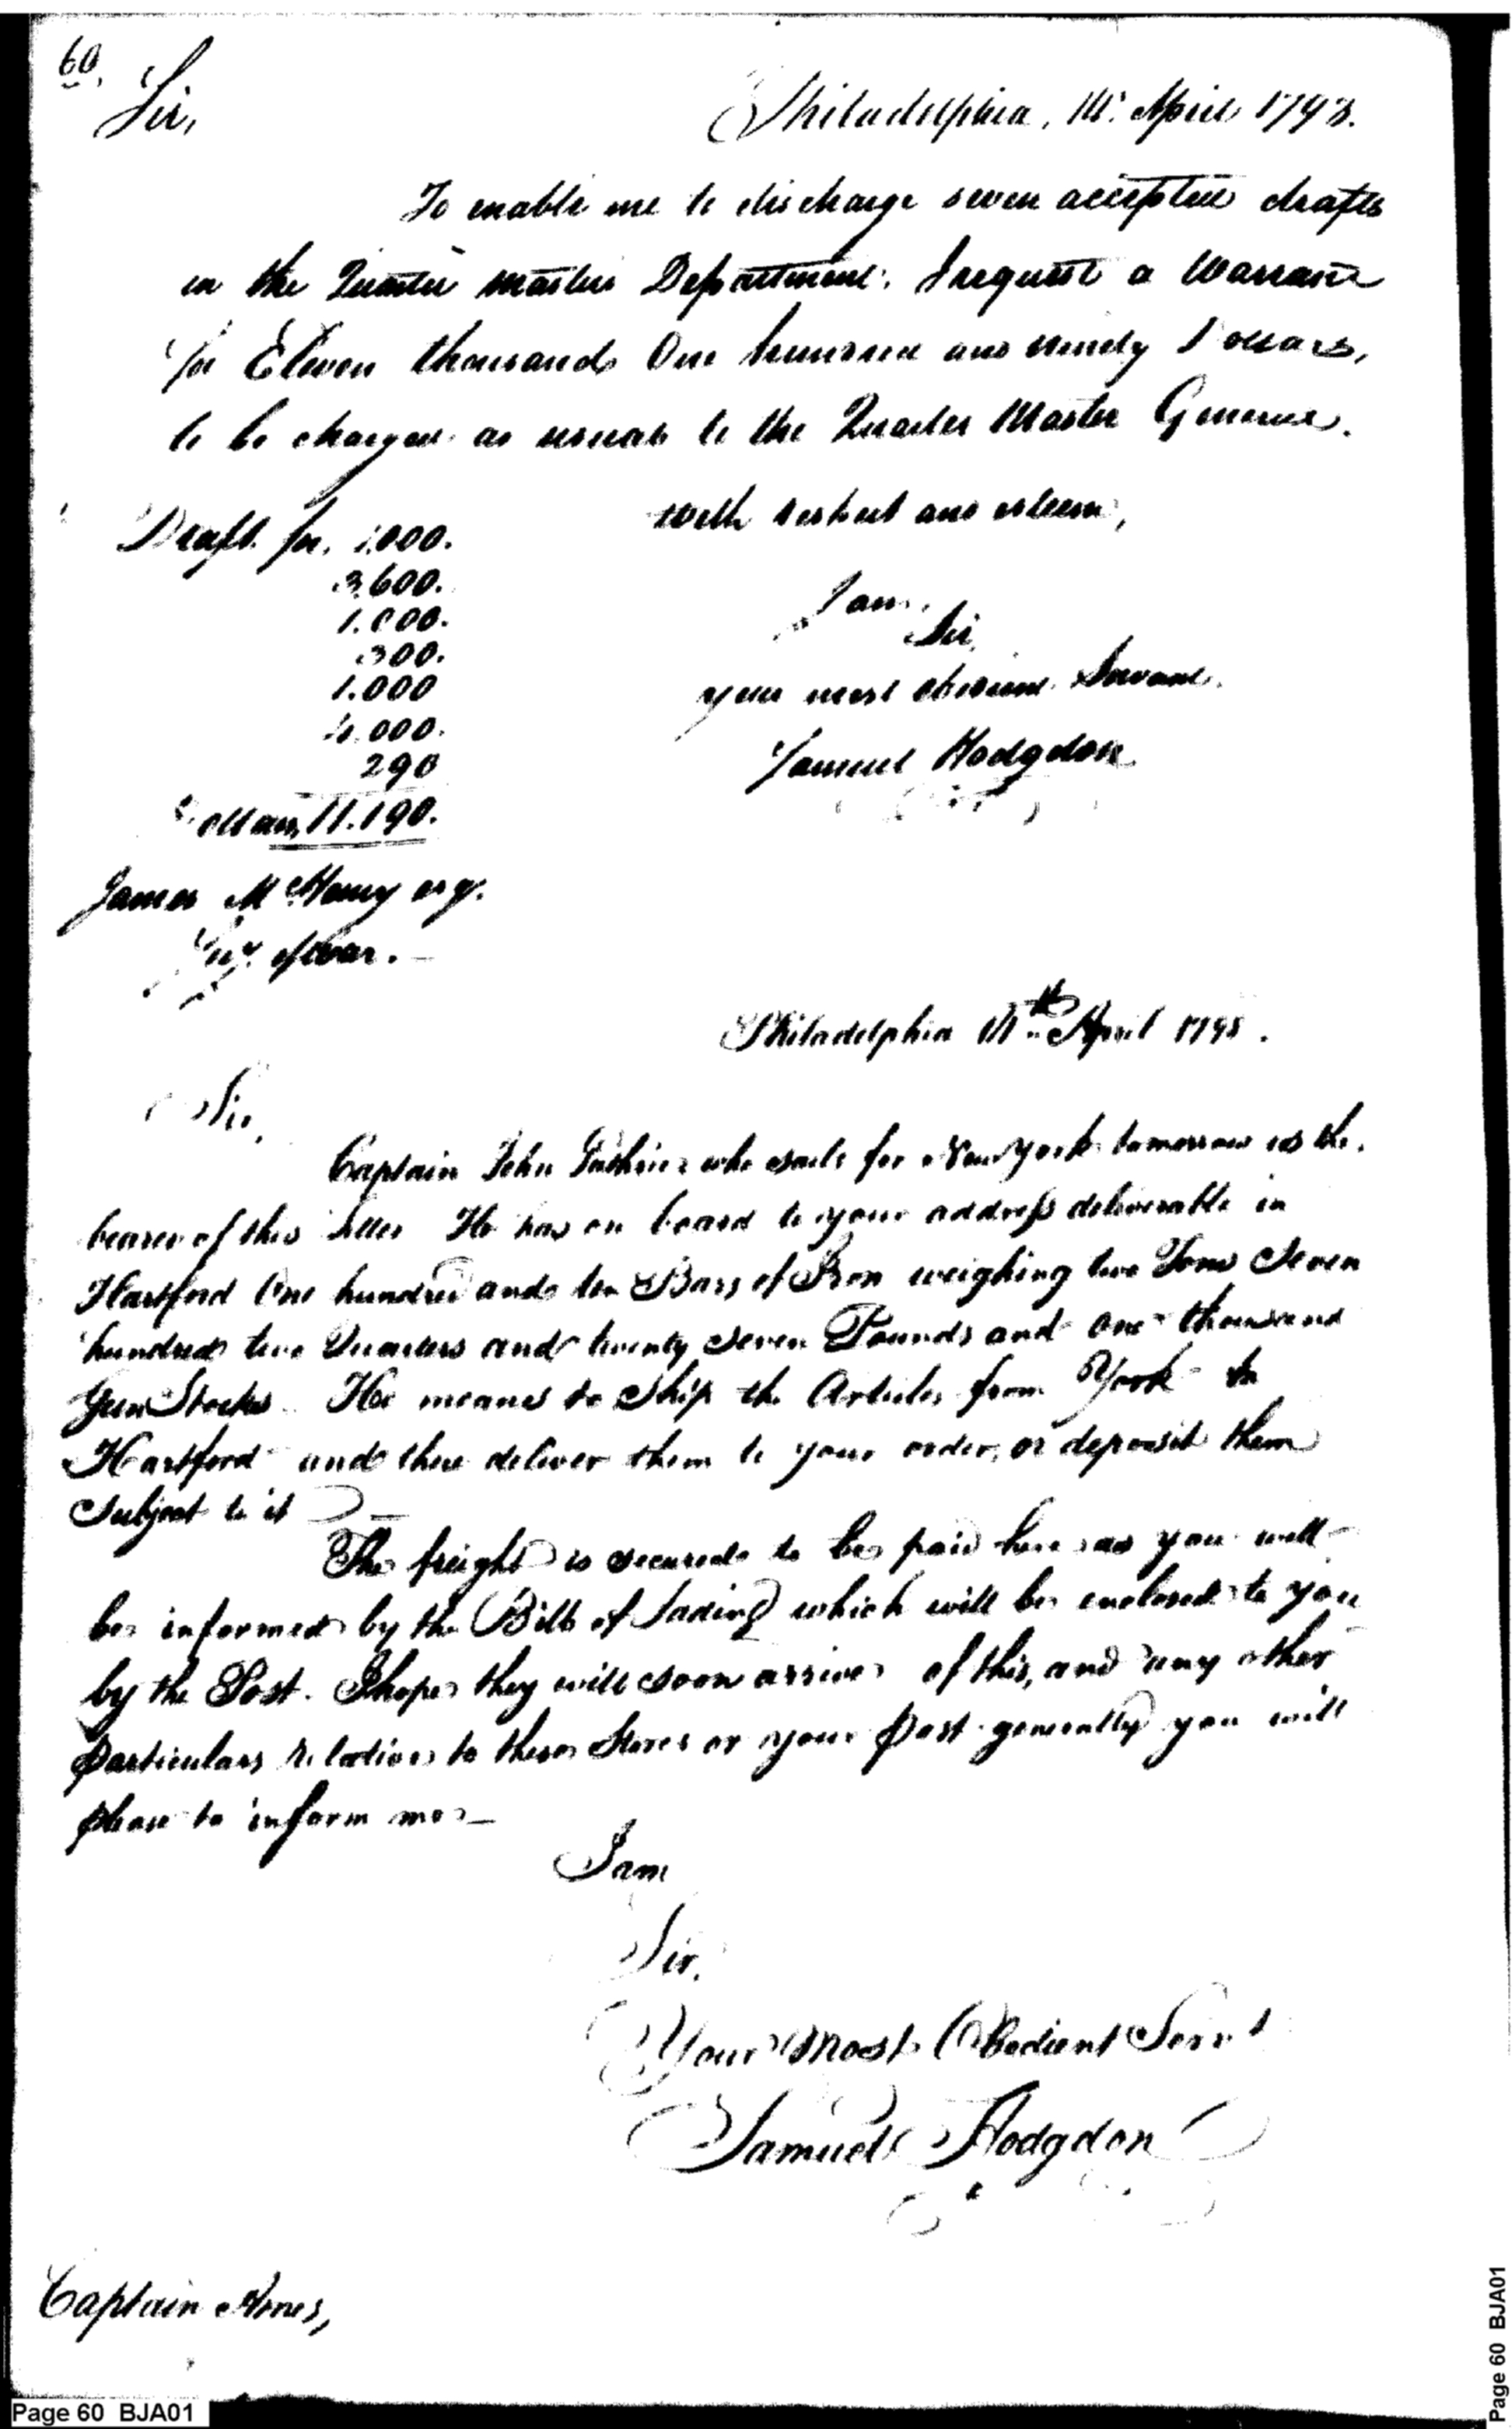 60.
Sir,
Philadelphia, 11th April 1798.
To enable me to discharge seven accepted drafts
in the Quarter Masters Department, I request a Warrant
for Eleven thousand One hundred and ninety Dollars,
to be charged as usual to the Quarter Master General.
With respect and esteem,
Draft for. 1.000.
3.600.
1.000.
300.
1.000
4.000.
290
Dollars 11.190.
I am,
Sir,
your most obedient Servant.
Samuel Hodgdon
James McHenry esq.
Secy of War.
Philadelphia 11th April 1798.
Sir,
Captain John who sails for New York tomorrow is the
bearer of this letter He has on board to your address deliverable in
Hartford One hundred and ten Bars of Iron weighing two Tons Seven
hundred two Quarters and twenty seven Pounds and one thousand
Gun Stocks. He means to Ship the Articles from York to
Hartford and there deliver them to your order, or deposit them
Subject to it
The freight is secured to be paid here as you will
be informed by the Bills of Lading which will be enclosed to you
by the Post. I hope they will soon arrive of this, and any other
particulars relative to these Stores or your Post generally you will
please to inform me
I am
Sir,
Your Most Obedient Servt
Samuel Hodgdon
Captain Ames,
Page 60 BJA01
Page 60 BJA01